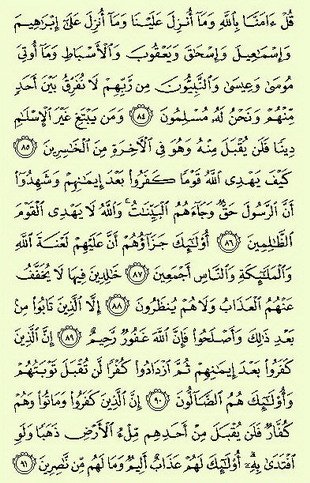 قُلْ ءَامَنَّا بِٱللَّهِ وَمَآ أُنزِلَ عَلَيْنَا وَمَآ أُنزِلَ عَلَىٰٓ إِبْرَٰهِيمَ
وَإِسْمَـٰعِيلَ وَإِسْحَـٰقَ وَيَعْقُوبَ وَٱلْأَسْبَاطِ وَمَآ أُوتِىَ
مُوسَىٰ وَعِيسَىٰ وَٱلنَّبِيُّونَ مِن رَّبِّهِمْ لَا نُفَرِّقُ بَيْنَ أَحَدٍ
مِّنْهُمْ وَنَحْنُ لَهُۥ مُسْلِمُونَ ٨٤ وَمَن يَبْتَغِ غَيْرَ ٱلْإِسْلَـٰمِ
دِينًا فَلَن يُقْبَلَ مِنْهُ وَهُوَ فِى ٱلْـَٔاخِرَةِ مِنَ ٱلْخَـٰسِرِينَ ٨٥
كَيْفَ يَهْدِى ٱللَّهُ قَوْمًا كَفَرُوا۟ بَعْدَ إِيمَـٰنِهِمْ وَشَهِدُوٓا۟
أَنَّ ٱلرَّسُولَ حَقٌّ وَجَآءَهُمُ ٱلْبَيِّنَـٰتُ ۚ وَٱللَّهُ لَا يَهْدِى ٱلْقَوْمَ
ٱلظَّـٰلِمِينَ ٨٦ أُو۟لَـٰٓئِكَ جَزَآؤُهُمْ أَنَّ عَلَيْهِمْ لَعْنَةَ ٱللَّهِ
وَٱلْمَلَـٰٓئِكَةِ وَٱلنَّاسِ أَجْمَعِينَ ٨٧ خَـٰلِدِينَ فِيهَا لَا يُخَفَّفُ
عَنْهُمُ ٱلْعَذَابُ وَلَا هُمْ يُنظَرُونَ ٨٨ إِلَّا ٱلَّذِينَ تَابُوا۟ مِنۢ
بَعْدِ ذَٰلِكَ وَأَصْلَحُوا۟ فَإِنَّ ٱللَّهَ غَفُورٌ رَّحِيمٌ ٨٩ إِنَّ ٱلَّذِينَ
كَفَرُوا۟ بَعْدَ إِيمَـٰنِهِمْ ثُمَّ ٱزْدَادُوا۟ كُفْرًا لَّن تُقْبَلَ تَوْبَتُهُمْ
وَأُو۟لَـٰٓئِكَ هُمُ ٱلضَّآلُّونَ ٩٠ إِنَّ ٱلَّذِينَ كَفَرُوا۟ وَمَاتُوا۟ وَهُمْ
كُفَّارٌ فَلَن يُقْبَلَ مِنْ أَحَدِهِم مِّلْءُ ٱلْأَرْضِ ذَهَبًا وَلَوِ
ٱفْتَدَىٰ بِهِۦٓ ۗ أُو۟لَـٰٓئِكَ لَهُمْ عَذَابٌ أَلِيمٌ وَمَا لَهُم مِّن نَّـٰصِرِينَ ٩١